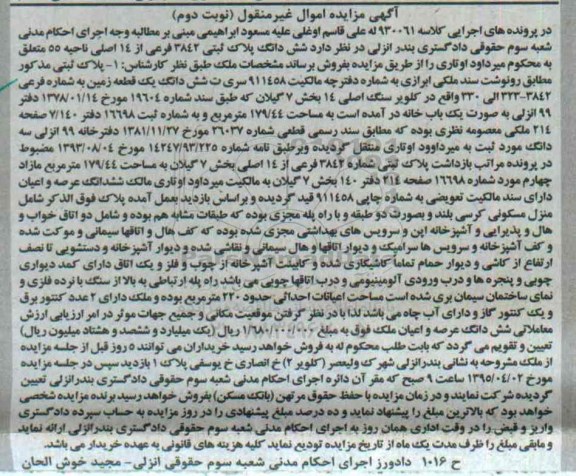 آگهی مزایده اموال غیرمنقول (نوبت دوم)
در پرونده های اجرایی کلاسه ۹۳۰۰۶۱ له علی قاسم اوغلی علیه مسعود ابراهیمی مبنی بر مطالبه وجه اجرای احکام مدنی
شعبه سوم حقوقی دادگستری بندر انزلی در نظر دارد شش دانگ پلاک ثبتی ۳۸۴۲ فرعی از ۱۴ اصلی ناحیه ۵۵ متعلق
به محکوم میرداود اوتاری را از طریق مزایده بفروش برساند مشخصات ملک طبق نظر کارشناس: ۱- پلاک ثبتی مذکور
مطابق رونوشت سند ملکی ابرازی به شماره دفترچه مالکیت ۹۱۱۴۵۸ سری ت شش دانگ یک قطعه زمین به شماره فرعی
۳۸۴۲-۳۲۳ الی ۳۳۰ واقع در کلویر سنگ اصلی ۱۴ بخش ۷ گیلان که طبق سند شماره ۱۹۶۰۴ مورخ ۱۳۷۸/۰۱/۱۴ دفتر
۹۹ انزلی به صورت یک باب خانه در آمده است به مساحت ۱۷۹/۴۴ مترمربع و به شماره ثبت ۱۶۶۹۸ دفتر ۷/۱۴۰ صفحه
۲۱۴ ملکی معصومه نظری بوده که مطابق سند رسمی قطعی شماره ۲۶۰۳۷ مورخ ۱۳۸۱/۱۱/۲۷ دفترخانه ۹۹ انزلی سه
دانگ مورد ثبت به میرداوود اوتاری منتقل گردیده وبرطبق نامه شماره ۱۴۲۴۷/۹۳/۲۲۵ مورخ ۱۳۹۳/۰۸/۰۴ مضبوط
در پرونده مراتب بازداشت پلاک ثبتی شماره ۳۸۴۲ فرعی از ۱۴ اصلی بخش ۷ گیلان به مساحت ۱۷۹/۴۴ مترمربع مازاد
چهارم مورد شماره ۱۶۶۹۸ صفحه ۲۱۴ دفتر ۱۴۰ بخش ۷ گیلان به مالکیت میرداود اوتاری مالک ششدانگ عرصه و اعیان
دارای سند مالکیت تعویضی به شماره چاپی ۹۱۱۴۵۸ قید گردیده و براساس بازدید بعمل آمده پلاک فوق الذکر شامل
منزل مسکونی کرسی بلند و بصورت دو طبقه و با راه پله مجزی بوده که طبقات مشابه هم بوده و شامل دو اتاق خواب و
هال و پذیرایی و آشپزخانه اپن و سرویس های بهداشتی مجزی شده بوده که کف هال و اتاقها سیمانی و موکت شده
و کف آشپزخانه و سرویس ها سرامیک و دیوار اتاقها و هال سیمانی و نقاشی شده و دیوار آشپزخانه و دستشویی تا نصف
ارتفاع از کاشی و دیوار حمام تماما کاشیکاری شده و کابینت آشپزخانه از چوب و فلز و یک اتاق دارای کمد دیواری
چوبی و پنجره ها و درب ورودی آلومینیومی و درب اتاقها چوبی می باشد راه پله ارتباطی به بالا از سنگ با نرده فلزی و
نمای ساختمان سیمان بری شده است مساحت اعیانات احداثی حدود ۲۲۰ مترمربع بوده و ملک دارای ۲ عدد کنتور برق
و یک کنتور گاز و دارای آب چاه می باشد لذا با در نظر گرفتن موقعیت مکانی و جمیع جهات موثر در امر ارزیابی ارزش
معاملاتی شش دانگ عرصه و اعیان ملک فوق به مبلغ ۱/۶۸۰/۰۰۰/۰۰۰ ریال (یک میلیارد و ششصد و هشتاد میلیون ریال)
تعیین و تقویم می گردد که بابت طلب محکوم له به فروش خواهد رسید خریداران می توانند ۵ روز قبل از جلسه مزایده
از ملک مشروحه به نشانی بندرانزلی شهرک ولیعصر (کلویر ۲) خ انصاری خ یوسفی پلاک ۱ بازدید سپس در جلسه مزایده
مورخ ۱۳۹۵/۰۴/۰۲ ساعت ۹ صبح که مقر آن دائره اجرای احکام مدنی شعبه سوم حقوقی دادگستری بندرانزلی تعیین
گردیده شرکت نمایند و در زمان مزایده با حفظ حقوق مرتهن (بانک مسکن) بفروش خواهد رسید برنده مزایده شخصی
خواهد بود که بالاترین مبلغ را پیشنهاد نماید و ده درصد مبلغ پیشنهادی را در روز مزایده به حساب سپرده دادگستری
واریز و قبض را در وقت اداری همان روز به اجرای احکام مدنی شعبه سوم حقوقی دادگستری بندرانزلی ارائه نماید
و مابقی مبلغ را ظرف مدت یک ماه از تاریخ مزایده تودیع نماید کلیه هزینه های قانونی به عهده خریدار می باشد.
ح ۱۰۱۶ دادورز اجرای احکام مدنی شعبه سوم حقوقی انزلی- مجید خوش الحان